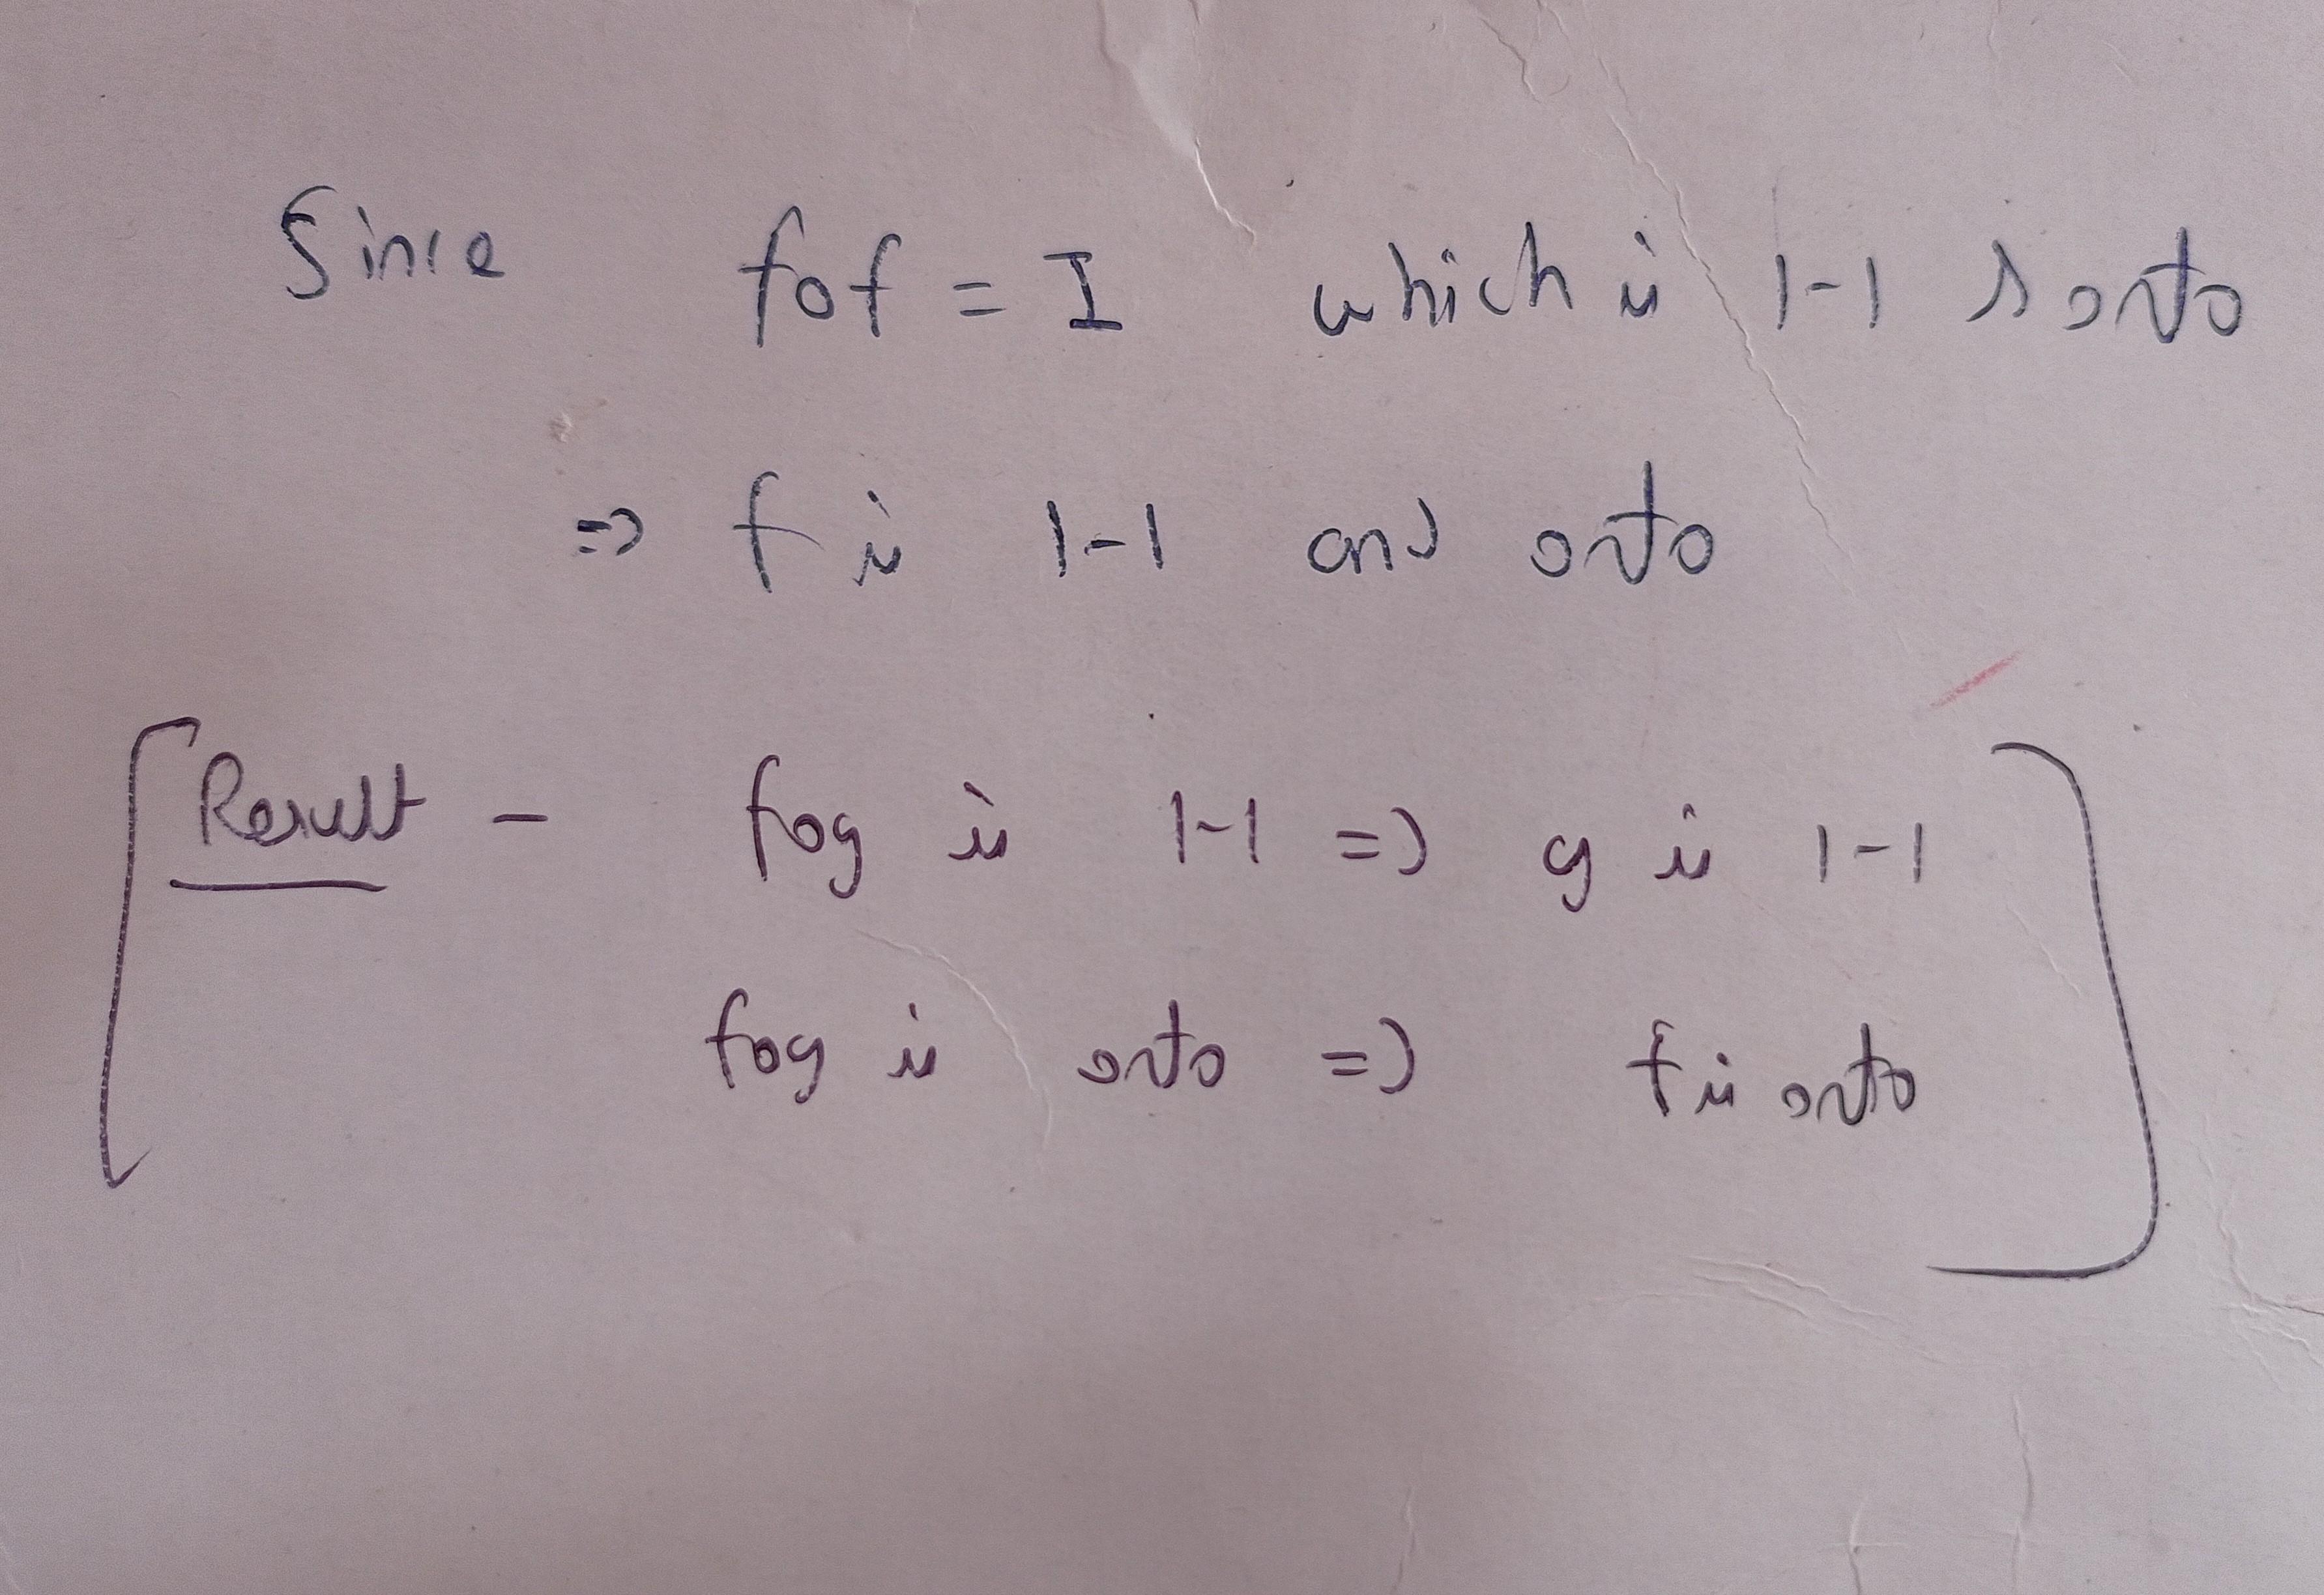 Since fof = I which is 1-1 & onto
=> f is 1-1 and onto
[Result - fog is 1-1 => g is 1-1
fog is onto => f is onto]